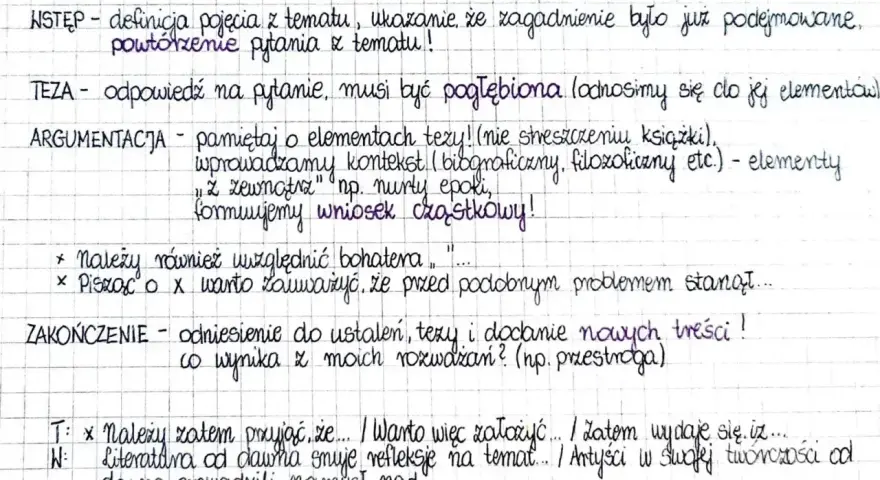 WSTĘP - definicja pojęcia z tematu, ukazanie, że zagadnienie było już podejmowane,
powtórzenie pytania z tematu!
TEZA - odpowiedź na pytanie, musi być pogłębiona (odnosimy się do jej elementów)
ARGUMENTACJA - pamiętaj o elementach tezy! (nie streszczeniu książki),
wprowadzamy kontekst (biograficzny, filozoficzny etc.) - elementy
„z zewnątrz" np. nurty epoki,
formuujemy wniosek cząstkowy!
× Należy również uwzględnić bohatera „ "...
× Pisząc o X warto zauważyć, że przed podobnym problemem stanął...
ZAKOŃCZENIE - odniesienie do ustaleń, tezy i dodanie nowych treści!
co wynika z moich rozważań? (np. przestroga)
T: × Należy zatem przyjąć, że... / Warto więc założyć... / Zatem wydaje się, iż...
W: Literatura od dawna snuje refleksje na temat... / Artyści w swojej twórczości od